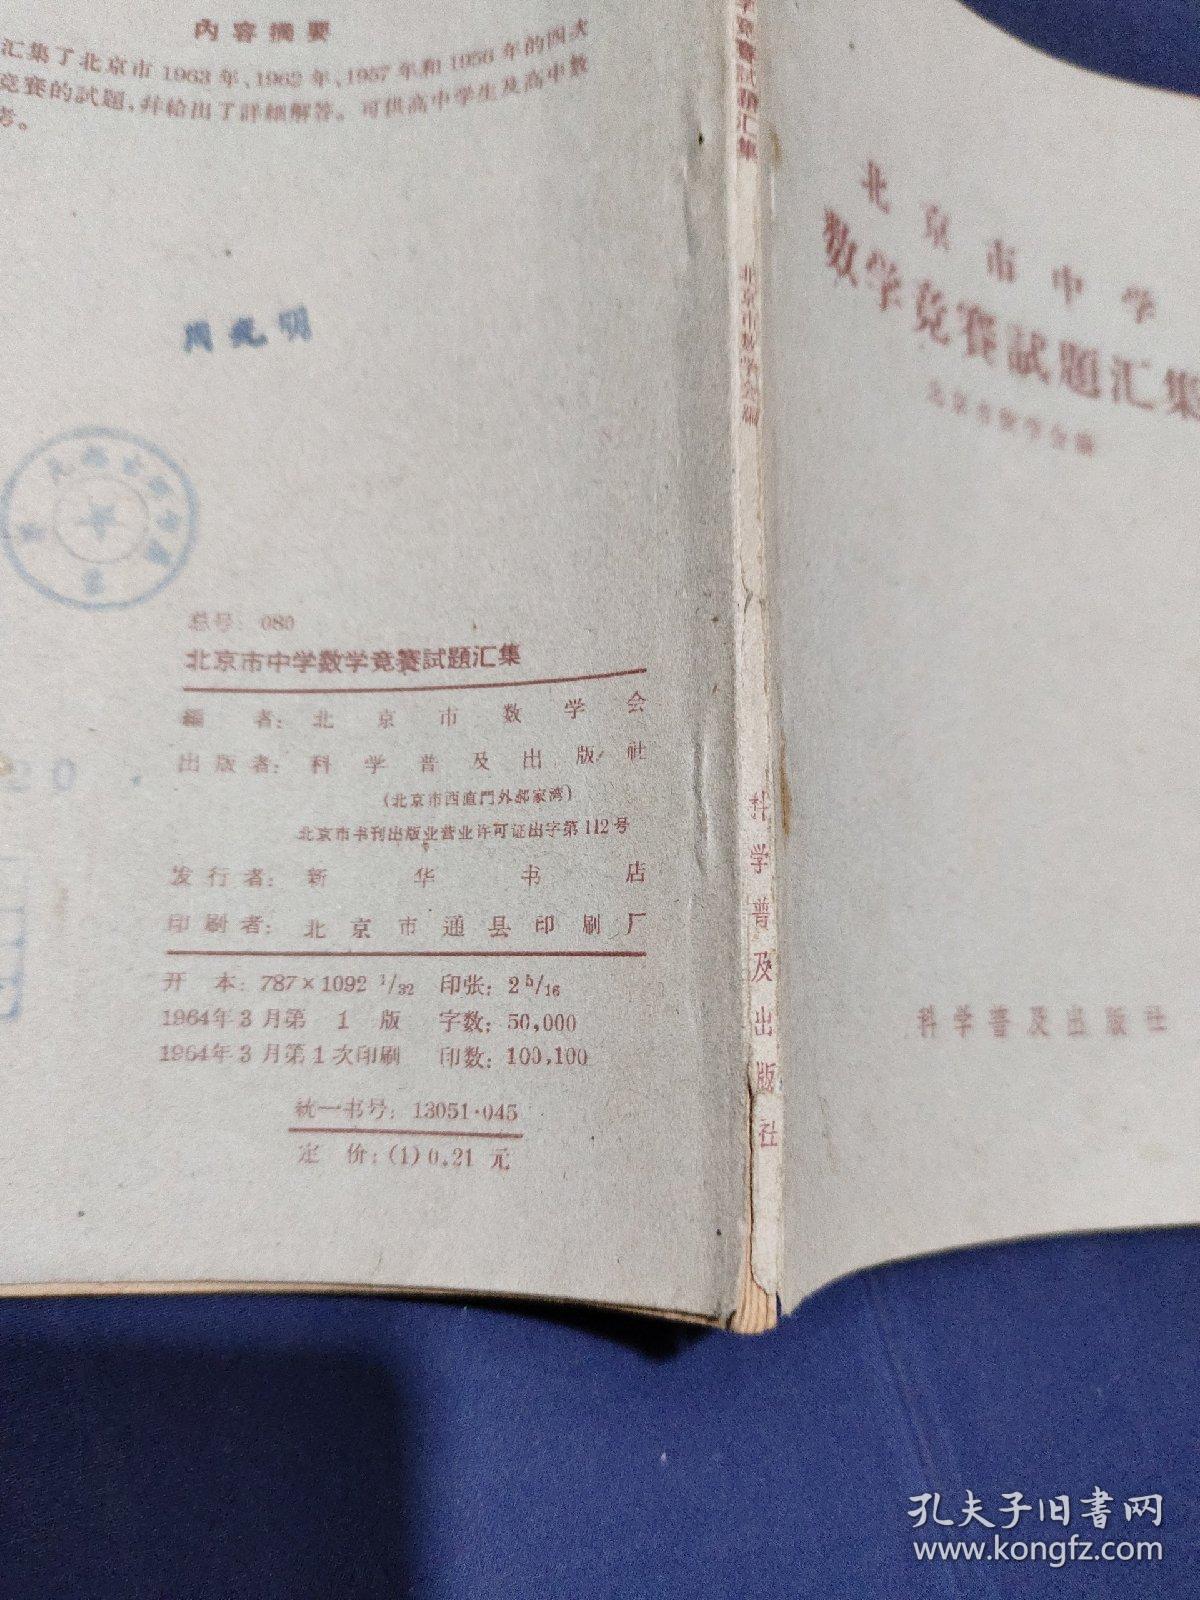 内容摘要
汇集了北京市1963年、1962年、1957年和1956年的四次
竞賽的試題,并給出了詳細解答。可供高中学生及高中数
考。
周光明
总号: 080
北京市中学数学竞賽試題汇集
編者: 北京市数学会
出版者: 科学普及出版社
(北京市西直門外郝家湾)
北京市书刊出版业营业许可证出字第112号
发行者: 新华书店
印刷者: 北京市通县印刷厂
开本: 787×1092 1/32 印张: 2 5/16
1964年3月第1版 字数: 50,000
1964年3月第1次印刷 印数: 100,100
統一书号: 13051·045
定价: (1) 0.21元
学竞賽試題汇集
北京市数学会編
科学普及出版社
北京市中学
数学竞賽試題汇集
北京市数学会編
科学普及出版社
孔夫子旧书网
www.kongfz.com